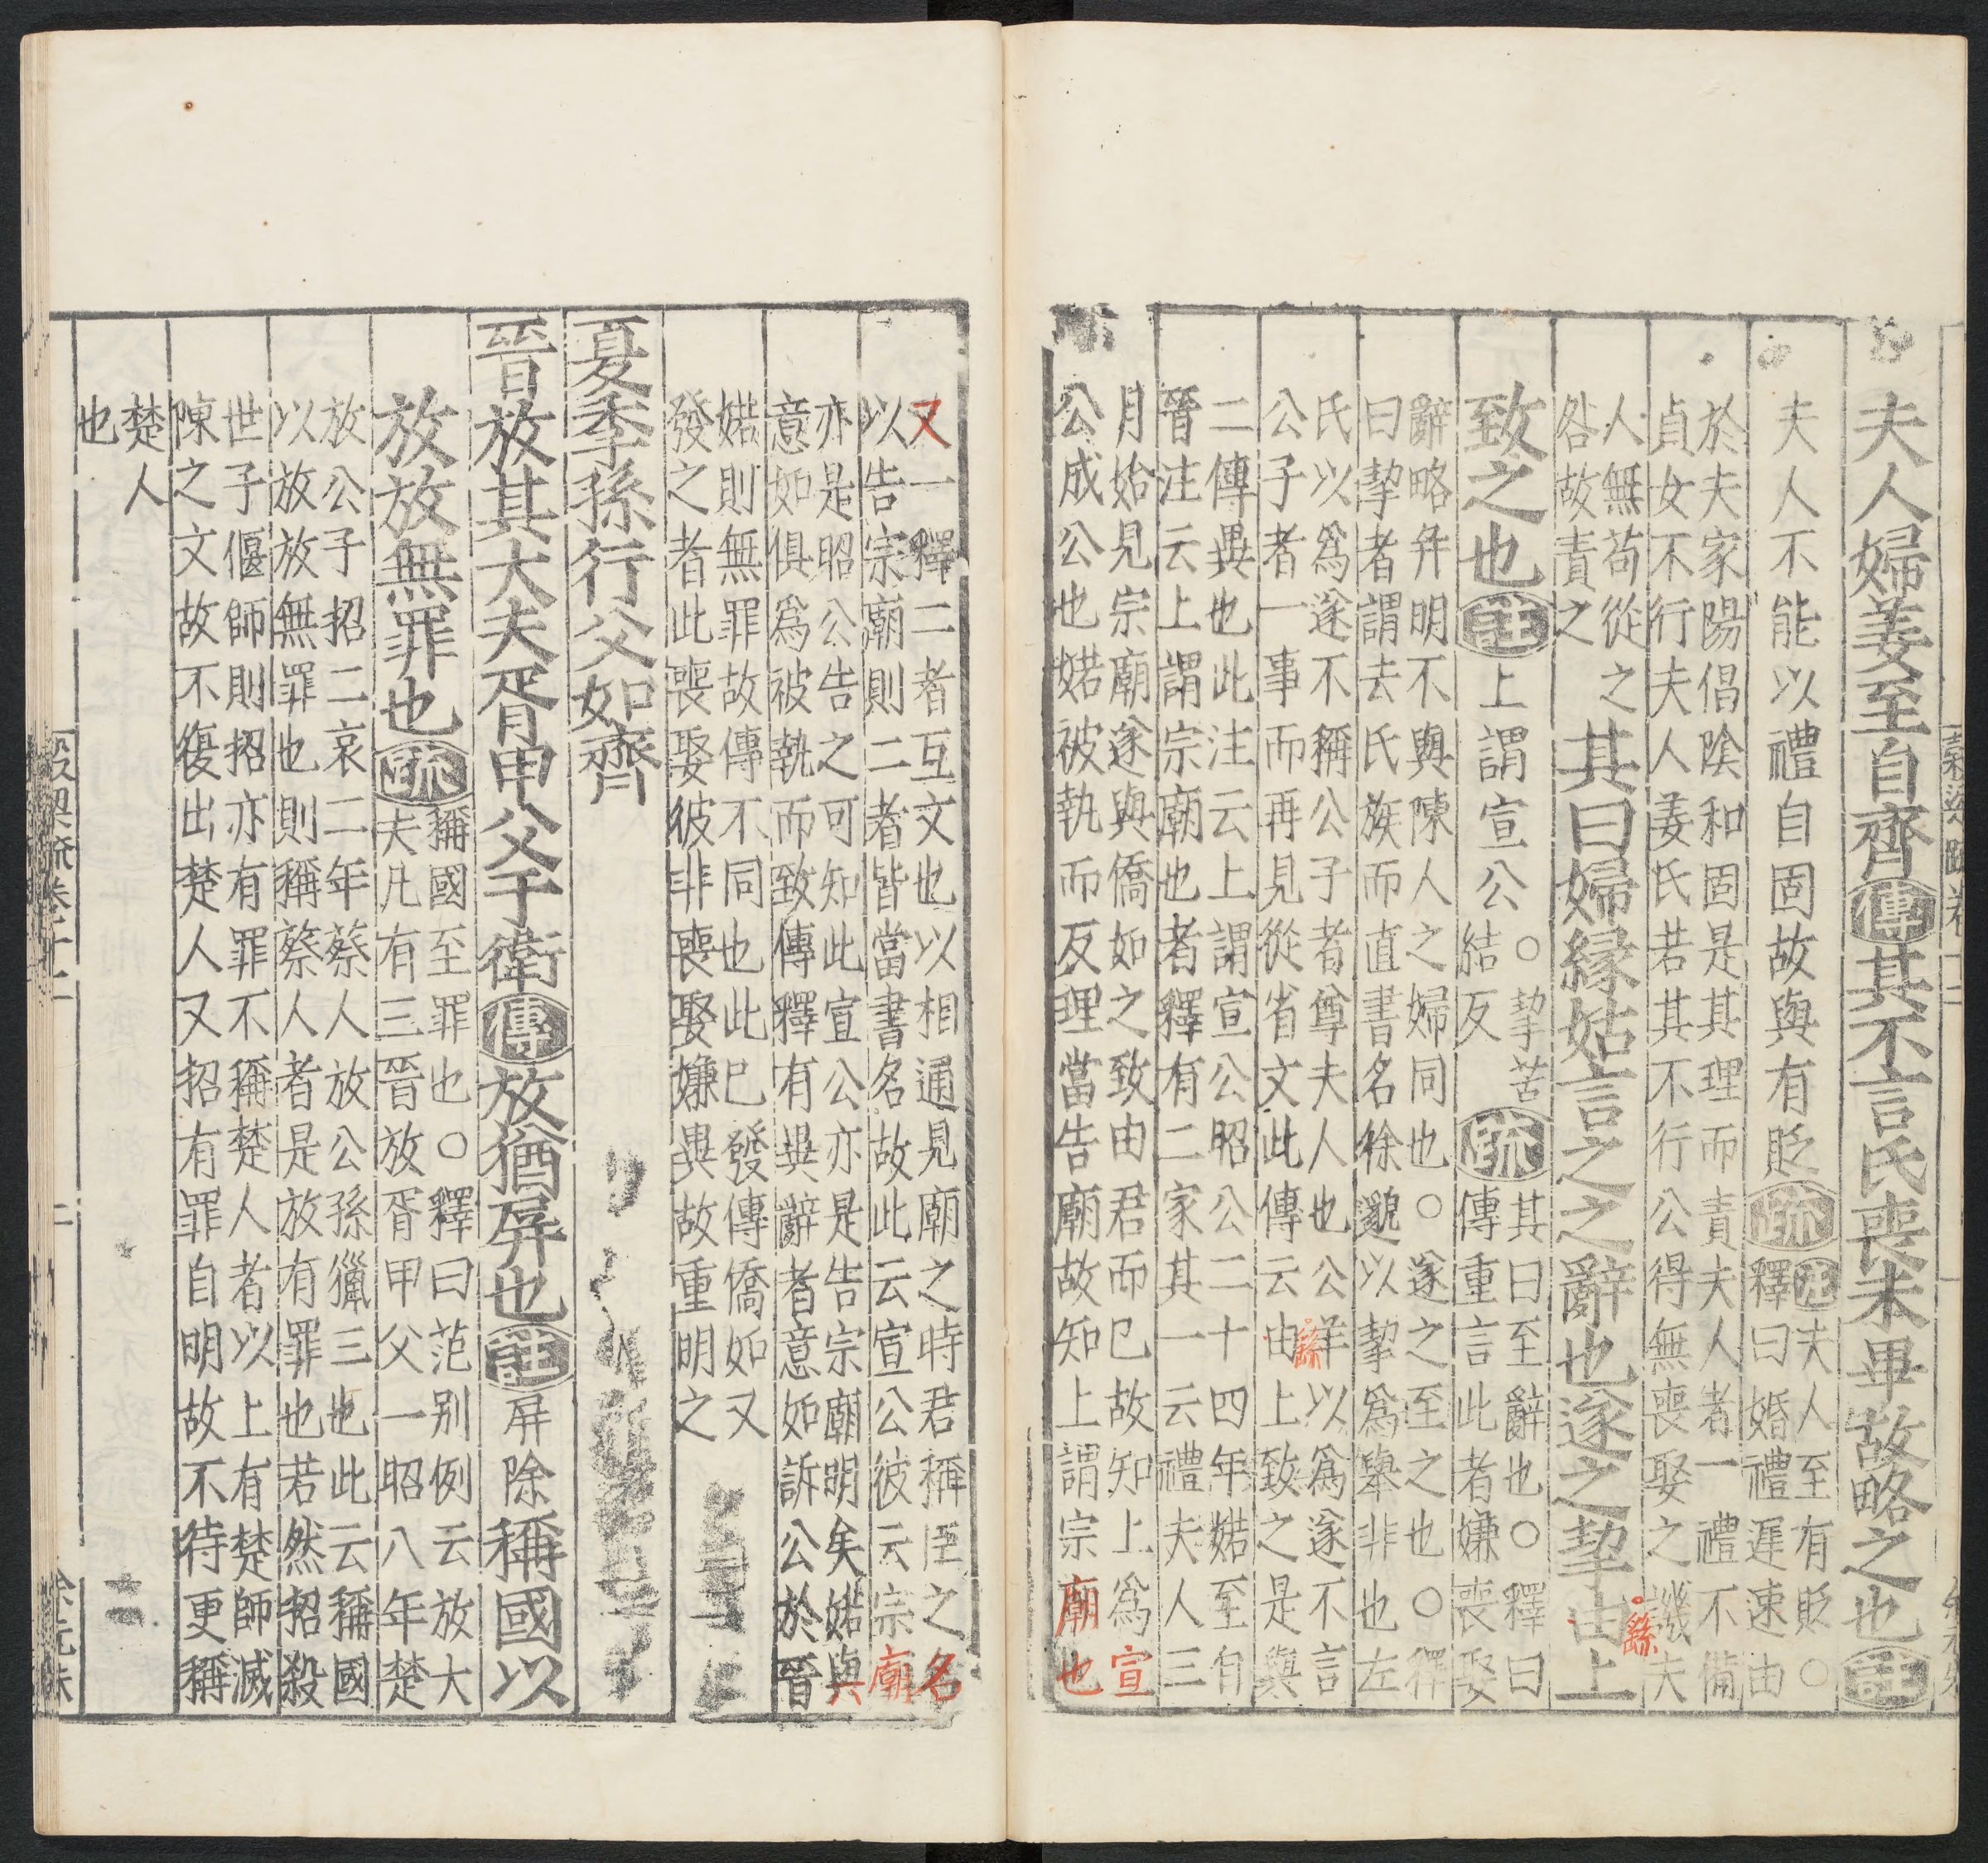 夫人婦姜至自齊傳其不言氏喪未畢故略之也註
夫人不能以禮自固故與有貶疏註夫人至有貶○
釋曰婚禮遲速由
於夫家陽倡陰和固是其理而責夫人者一禮不備
貞女不行夫人姜氏若其不行公得無喪娶之譏夫
人無苟從之
咎故責之
其曰婦緣姑言之之辭也遂之挈由上
繇
致之也註上謂宣公○挈苦
結反
疏其曰至辭也○釋曰
傳重言此者嫌喪娶
辭略幷明不與陳人之婦同也○遂之至之也○釋
曰挈者謂去氏族而直書名徐邈以挈爲舉非也左
氏以爲遂不稱公子者尊夫人也公羊以爲遂不言
公子者一事而再見從省文此傳云由上致之是與
繇
二傳異也此注云上謂宣公昭公二十四年婼至自
晉注云上謂宗廟也者釋有二家其一云禮夫人三
月始見宗廟遂與僑如之致由君而已故知上爲宣
公成公也婼被執而反理當告廟故知上謂宗廟也
又一釋二者互文也以相通見廟之時君稱臣之名
以告宗廟則二者皆當書名故此云宣公彼云宗廟
亦是昭公告之可知此宣公亦是告宗廟明矣婼與
意如俱爲被執而致傳釋有異辭者意如訴公於晉
婼則無罪故傳不同也此已發傳僑如又
發之者此喪娶彼非喪娶嫌異故重明之
夏季孫行父如齊
晉放其大夫胥甲父于衛傳放猶屏也註屏除稱國以
放放無罪也疏稱國至罪也○釋曰范别例云放大
夫凡有三晉放胥甲父一昭八年楚
放公子招二哀二年蔡人放公孫獵三也此云稱國
以放放無罪也則稱蔡人者是放有罪也若然招殺
世子偃師則招亦有罪不稱楚人者以上有楚師滅
陳之文故不復出楚人又招有罪自明故不待更稱
楚人
也
穀梁疏卷十二
二
余元珠